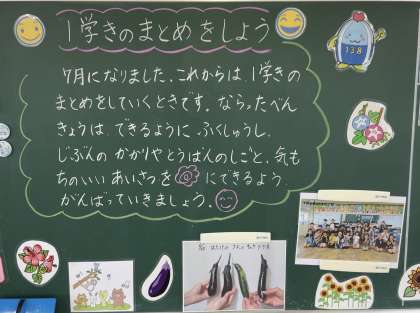 1学きのまとめをしよう
7月になりました。これからは、1学きの
まとめをしていくときです。ならったべん
きょうは、できるように ふくしゅうし、
じぶんの かかりやとうばんのしごと、気も
ちのいい あいさつを にできるよう
がんばっていきましょう。
138